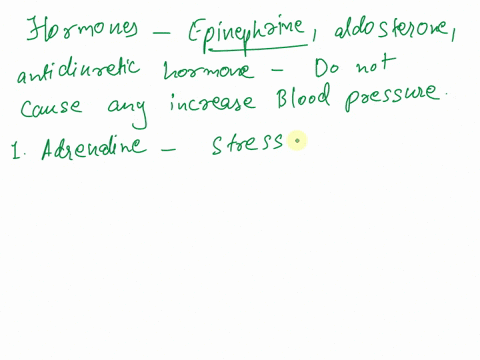 Hormones - Epinephrine, aldosterone,
antidiuretic hormone - Do not
cause any increase Blood pressure.
1. Adrenaline - stress